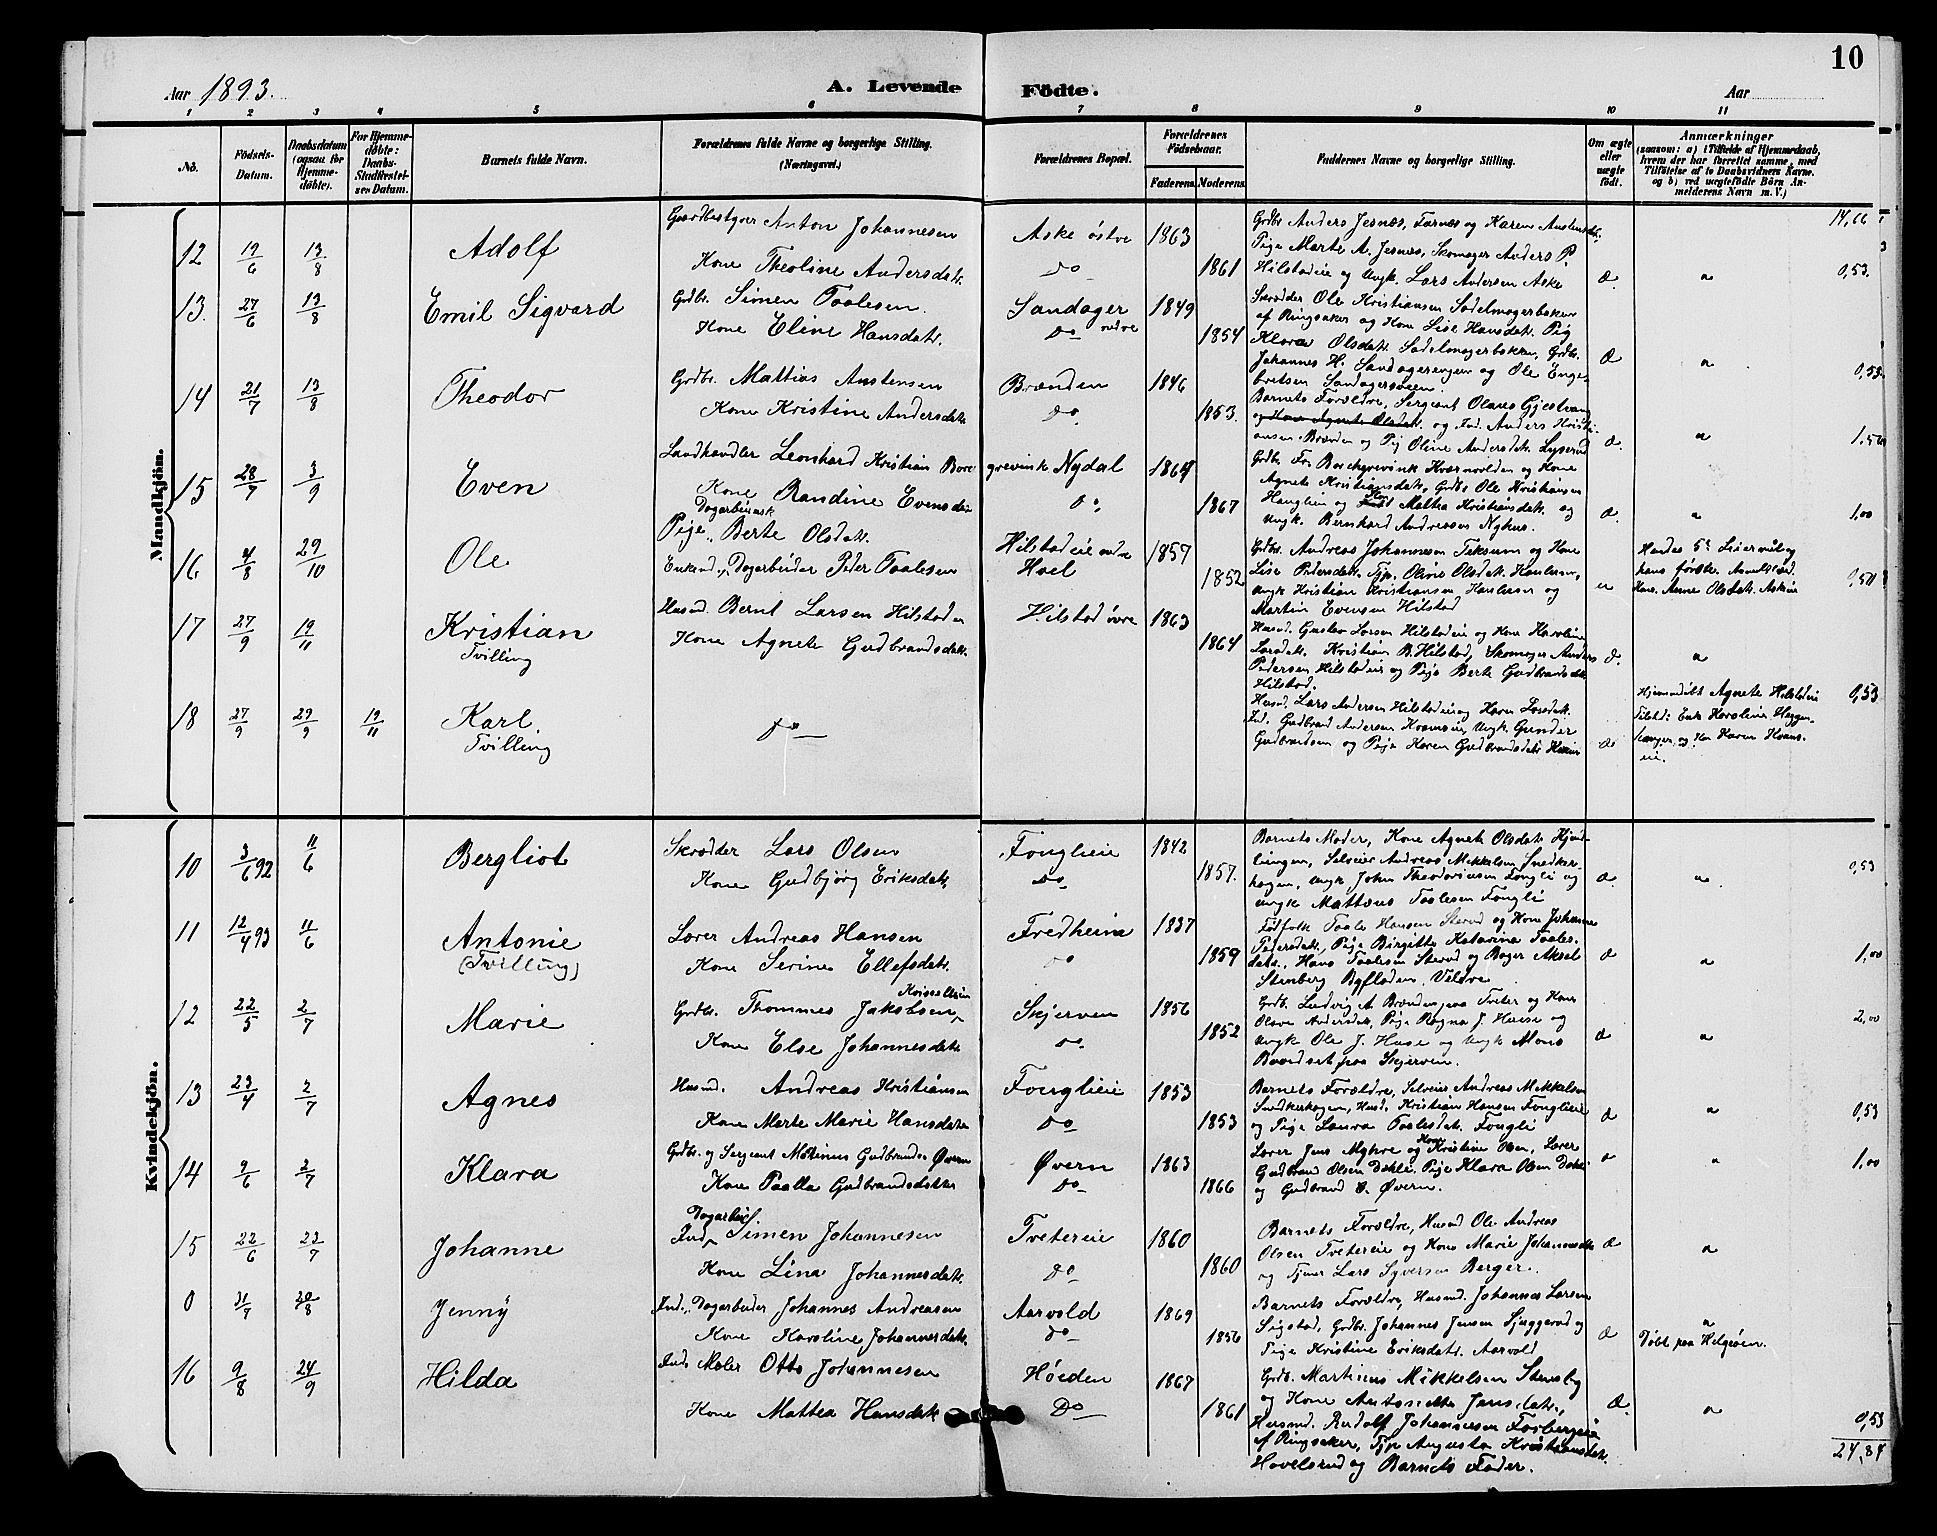 10
Aar 1893.
A. Levende Födte.
Aar
1 2 3 4 5 6 7 8 9 10 11
No.
Födsels-Datum.
Daabsdatum (ogsaa for Hjemmedöbte).
For Hjemmedöbte: Daabs-Stadfæstelses Datum.
Barnets fulde Navn.
Forældrenes fulde Navne og borgerlige Stilling. (Næringsvei.)
Forældrenes Bopæl.
Forældrenes Födselsaar.
Faderens.
Moderens.
Faddernes Navne og borgerlige Stilling.
Om ægte eller uægte födt.
Anmærkninger
(saasom: a) i Tilfælde af Hjemmedaab, hvem der har forrettet samme, med Tilföielse af to Daabsvidners Navne. og b) ved uægtefödte Börn Anmelderens Navn m. V.)
Mandkjön.
12 19/6 13/8 Adolf
Gaardbestyrer Anton Johannesen
Kone Theoline Andersdatr.
Aske östre
do
1863
1861
Grdbr. Anders Jesnæs, Farnæs og Karen
Pige Marte A. Jesnæs, Skomager Anders P.
Hilstadeie og Ungk. Lars Andersen Aske
Æ.
0,53
13. 27/6 13/8 Emil Sigvard
Grdbr. Simen Paalesen
Kone Eline Hansdatr.
Sandager
do nedre
1849
1854
Skrædder Ole Kristiansen Sadelmagerbakken
af Ringsaker og Kone Lise Hansdatr. Pig
Klara Olsdatr. Sadelmagerbakken, Grdbr.
Johannes H. Sandagerengen og Ole Enge-
bretsen Sandagersveen.
Æ
0,53
14 21/7 13/8 Theodor
Grdbr. Mattias Austensen
Kone Kristine Andersdatr
Brænden
do
1846
1853.
Barnets Forældre, Sergeant Olaves Gjestvang
og Kone Agnete Olsdatr. og Ind. Anders Kristi-
ansen Brænden og Pig Oline Andersdatr. Lyserud
Æ.
15 28/7 3/9 Even
Landhandler Leonhard Kristian Borc
grevink Nydal
Kone Randine Evensdatr
do
1864
1867
Grdbr. Fr. Borchgrevink Kværnvolden og Kone
Agnete Kristiansdatr., Grdbr Ole Kristiansen
Hauglien og Matha Kristiansdatr. og
Ungk. Bernhard Andreasen Nyhus.
Æ.
1,00
16 4/8 29/10 Ole
Dagarbeiersk
Pige, Berte Olsdatr.
Enkemd., Dagarbeider Peder Paalesen
Hilstadeie nedre
Hoel
1857
1852
Grdbr. Andreas Johannesen Teksum og Kone
Lise Pedersdatr., Tjp. Oline Olsdatr. Haulersen,
Ungk Kristian Kristiansen Haulersen og
Martin Evensen Hilstad
u
Hendes 5te Leiermaal og
hans förste.
Kone. Anne Olsdatr. Askeie
0,50
17 27/9 19/11 Kristian
Tvilling
Husmd. Bernt Larsen Hilstadeie
Kone Agnete Gudbrandsdatr.
Hilstad övre
1863
1864
Husmd. Gustav Larsen Hilstadeie og Kone Karoline
Larsdatr. Kristian B. Hilstad, Skomager Anders
Pedersen Hilstadeie og Pige Berte Gudbrandsdatr.
Hilstad.
Æ.
18 27/9 29/9 19/11 Karl
Tvilling
do
Husmd. Lars Andersen Hilstadeie og Karen Larsdatr.
Ind. Gudbrand Andersen Kvamseie, Ungk Gunder
Gudbrandsen og Pige Karen Gudbrandsdatr.
Æ
Hjemmedöbt Agnete Hilstadeie
Tilsted: Enke Karoline Haggen-
hangen, og Kone Karen Kvams-
eie.
0,53
Kvindekjön.
10 3/6 92 11/6 Bergliot
Skrædder Lars Olsen
Kone Gudbjörg Eriksdatr.
Fonglieie
do
1842
1857.
Barnets Moder, Kone Agnete Olsdatr
Selveier Andreas Mikkelsen Snedker-
hagen, Ungk John Theodoriusen Fongli og
Ungk Mattæus Paalesen Fongli
Æ.
0,53
11 12/4 93 11/6 Antonie
(Tvilling)
Lærer Andreas Hansen
Kone Serine Ellefsdatr.
Fredheim
do
1837
1859
Födfolk Paale Hansen Sterud og Kone Johanne
Pedersdatr., Pige Birgitte Katarina Paales-
datr., Hans Paalesen Sterud og Bager Aksel
Stenberg Byfladen, Veldre.
Æ
1,00
12 22/5 2/7 Marie
Grdbr. Thommes Jakobsen
Kone Else Johannesdatr.
Skjerven
do
1856
1852
Grdbr. Ludvig A. Brænden, paa Tveter og Kone
Olave Andersdatr., Pige Ragna J. Huse og
Ungk Ole J. Huse og Ungk Mons
Baardset paa Skjerven.
Æ
2,00
13 23/4 2/7 Agnes
Husmd. Andreas Kristiansen
Kone Marte Marie Hansdatr
Fonglieie
do
1853
1853
Barnets Forældre, Selveier Andreas Mikkelsen
Snedkerhagen, Husmd. Kristian Hansen Fonglieie
og Pige Laura Paalesdatr. Fongli
Æ
0,53
14 9/6 2/7 Klara
Grdbr. og Sergeant Martinus Gudbrandsen Øvern
Kone Paalla Gudbrandsdatter
Øvern
do
1863
1866
Lærer Jens Myhre og Kone Kristine Olsen, Lærer
Gudbrand Olsen Dahle, Pige Klara Olsen Dahle
og Gudbrand O. Øvern.
1,00
15 22/6 23/7 Johanne
Dagarbeid.
Ind., Simen Johannesen
Kone Lina Johannesdatr.
Tvetereie
do
1860
1860
Barnets Forældre, Husmd Ole Andreas
Olsen Tvetereie og Kone Marie Johannesdatr.
og Tjener Lars Syversen Berger.
Æ
0 31/7 20/8 Jenny
Ind., Dagarbeider Johannes Andreasen
Kone Karoline Johannesdatr.
Aarvold
do
1869
1856
Barnets Forældre, Husmd. Johannes Larsen
Sigstad, Grdbr. Johannes Jensen Sjuggerud og
Pige Kristine Eriksdatr. Aarvold
Æ
Döbt paa Helgeöen.
16 9/8 24/9 Hilda
Inds. Maler Otto Johannesen
Kone Mattea Hansdatr
Höieden
Do
1867
1861
Grdbr. Martinus Mikkelsen Stensby
og Kone Antonette Jensdatr.,
Husmd. Rudolf Johannesen Forbergseie
af Ringsaker, Tjp Augusta Kristiansdatr.
Hovelsrud og Barnets Fader.
Æ.
0,53
24,84